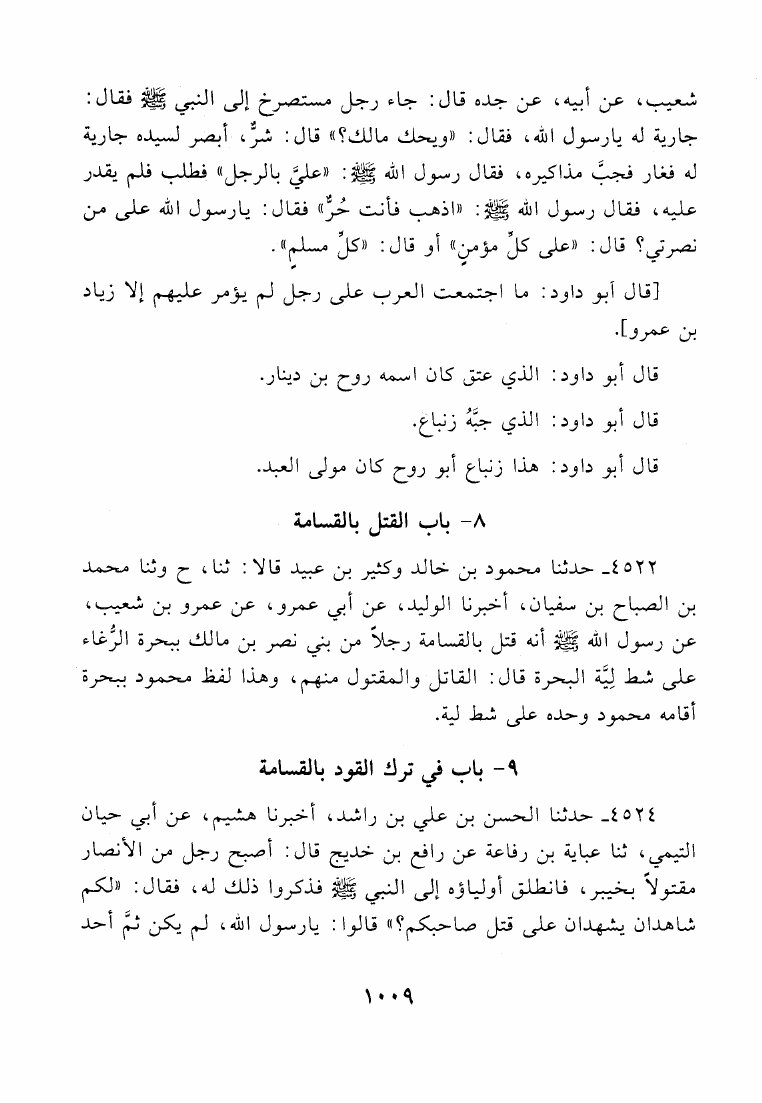 شعيب، عن أبيه، عن جده قال: جاء رجل مستصرخ إلى النبي ﷺ فقال:
جارية له يارسول الله، فقال: «ويحك مالك؟» قال: شرٌّ، أبصر لسيده جارية
له فغار فجبَّ مذاكيره، فقال رسول الله ﷺ: «عليَّ بالرجل» فطلب فلم يقدر
عليه، فقال رسول الله ﷺ: «اذهب فأنت حُرٌّ» فقال: يارسول الله على من
نصرتي؟ قال: «على كلِّ مؤمنٍ» أو قال: «كلِّ مسلمٍ».
[قال أبو داود: ما اجتمعت العرب على رجل لم يؤمر عليهم إلا زياد
بن عمرو].
قال أبو داود: الذي عتق كان اسمه روح بن دينار.
قال أبو داود: الذي جبَّهُ زنباع.
قال أبو داود: هذا زنباع أبو روح كان مولى العبد.
٨- باب القتل بالقسامة
٤٥٢٢ـ حدثنا محمود بن خالد وكثير بن عبيد قالا: ثنا، ح وثنا محمد
بن الصباح بن سفيان، أخبرنا الوليد، عن أبي عمرو، عن عمرو بن شعيب،
عن رسول الله ﷺ أنه قتل بالقسامة رجلاً من بني نصر بن مالك ببحرة الرُّغاء
على شط لِيَّة البحرة قال: القاتل والمقتول منهم، وهذا لفظ محمود ببحرة
أقامه محمود وحده على شط لية.
٩- باب في ترك القود بالقسامة
٤٥٢٤ـ حدثنا الحسن بن علي بن راشد، أخبرنا هشيم، عن أبي حيان
التيمي، ثنا عباية بن رفاعة عن رافع بن خديج قال: أصبح رجل من الأنصار
مقتولاً بخيبر، فانطلق أولياؤه إلى النبي ﷺ فذكروا ذلك له، فقال: «لكم
شاهدان يشهدان على قتل صاحبكم؟» قالوا: يارسول الله، لم يكن ثمَّ أحد
١٠٠٩